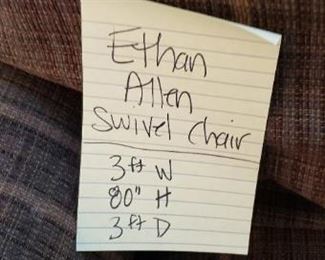 Ethan
Allen
Swivel Chair
3ft W
80" H
3ft D